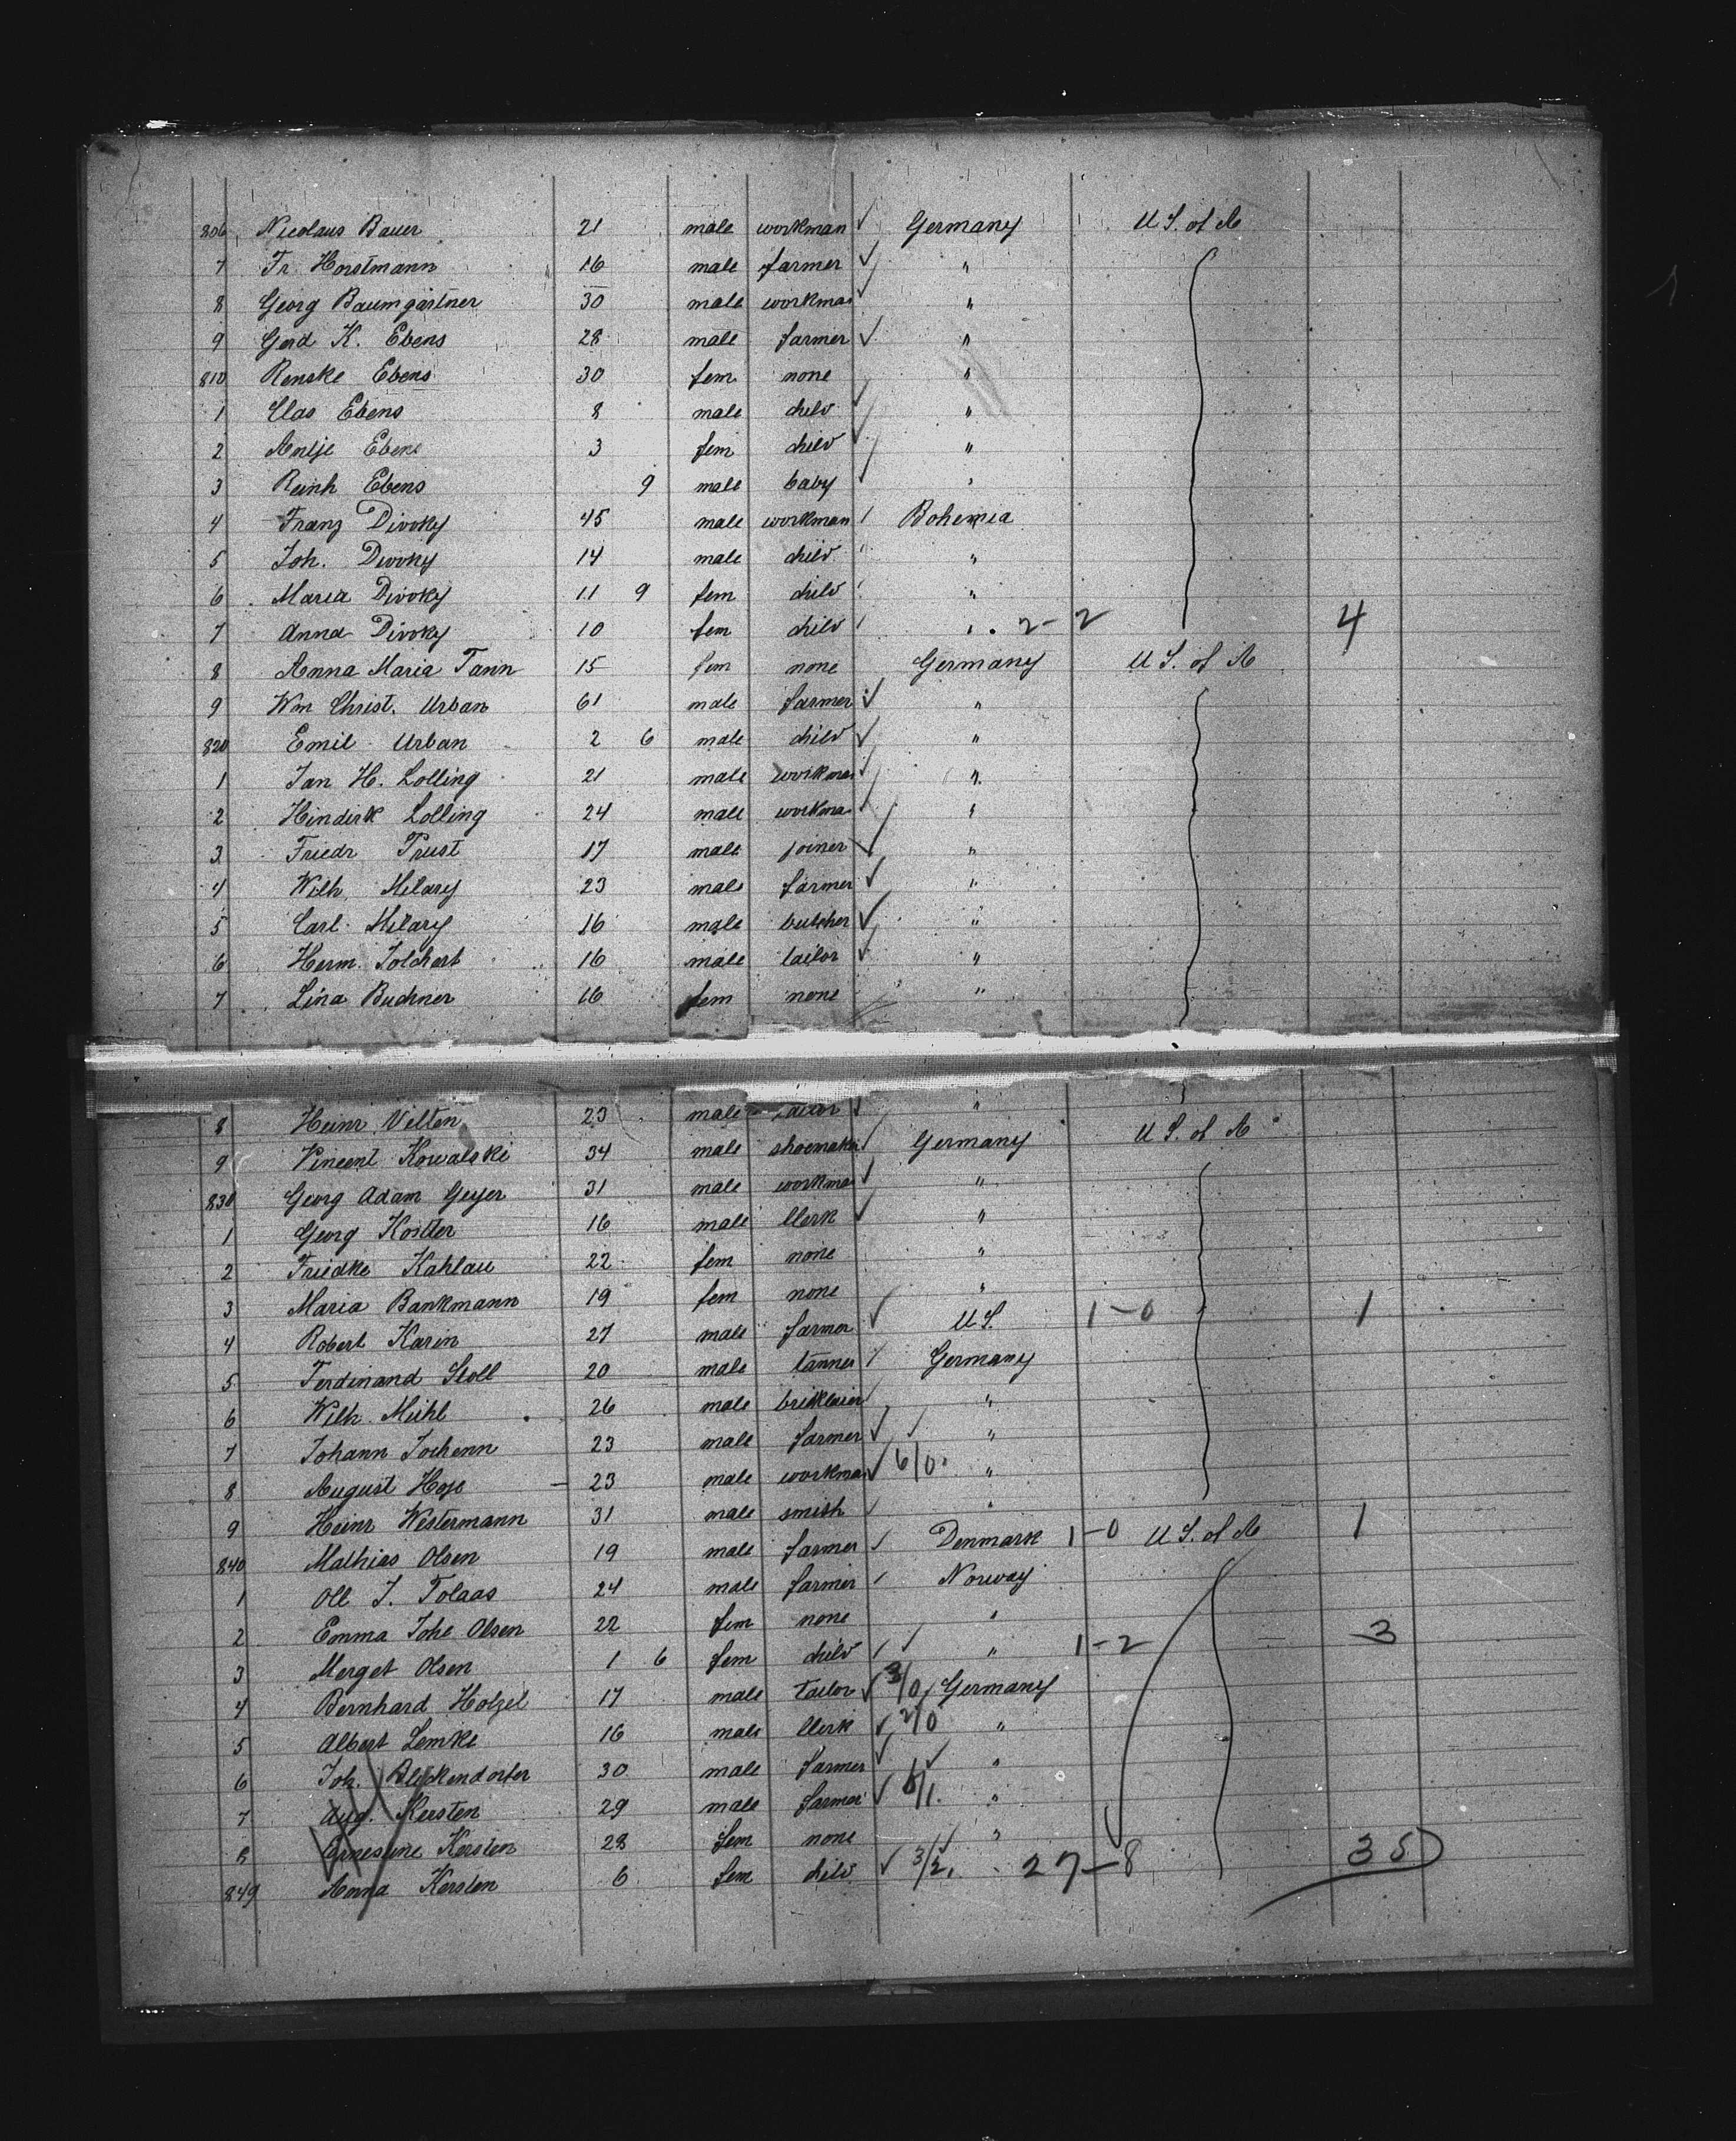 806 Nicolaus Bauer 21 male workman ✓ Germany U S. of A
7 Fr. Horstmann 16 male farmer ✓ "
8 Georg Baumgärtner 30 male workman ✓ "
9 Gerd K. Ebens 28 male farmer ✓ "
810 Renske Ebens 30 fem none "
1 Clas Ebens 8 male child ✓ "
2 Antje Ebens 3 fem child ✓ "
3 Reinh Ebens 9 male baby ✓ "
4 Franz Divoky 45 male workman / Bohemia
5 Joh. Divoky 14 male child "
6 Maria Divoky 11 9 fem child "
7 Anna Divoky 10 fem child / " 2-2 4
8 Anna Maria Tann 15 fem none Germany U S. of A
9 Wm Christ. Urban 61 male farmer ✓ "
820 Emil Urban 2 6 male child ✓ "
1 Jan H. Lolling 21 male workman ✓ "
2 Hindirk Lolling 24 male workma ✓ "
3 Friedr Trust 17 male joiner ✓ "
4 Wilh. Hilary 23 male farmer ✓ "
5 Carl Hilary 16 male butcher ✓ "
6 Herm. Tolchert 16 male tailor ✓ "
7 Lina Buchner 16 fem none "
8 Heinr Velten 23 male "
9 Vincent Kowalski 34 male shoemaker / Germany U S. of A
830 Georg Adam Geyer 31 male workma ✓ "
1 Georg Koster 16 male Clerk ✓ "
2 Friedke Kahlau 22 fem none "
3 Maria Bankmann 19 fem none "
4 Robert Karin 27 male farmer ✓ U S. 1-0 1
5 Ferdinand Stoll 20 male tanner / Germany
6 Wilh. Mühl 26 male bricklaier / "
7 Johann Jochenn 23 male farmer ✓ ✓ "
8 August Hoje 23 male workman ✓ 6/0 "
9 Heinr Westermann 31 male smith / "
840 Mathias Olsen 19 male farmer / Denmark 1-0 U S. of A 1
1 Oll J. Tolaas 24 male farmer / Norway
2 Emma Johe Olsen 22 fem none "
3 Merget Olsen 1 6 fem child / ✓ " 1-2 3
4 Bernhard Holzel 17 male tailor ✓ 3/0 Germany
5 Albert Lemke 16 male Clerk ✓ 2/0 "
6 Joh. Bleckendorfer 30 male farmer ✓ ✓ "
7 Aug. Kersten 29 male farmer ✓ 6/1. "
8 Ernestine Kersten 28 fem none ✓ "
849 Anna Kersten 6 fem child ✓ 3/2. 27-8 35